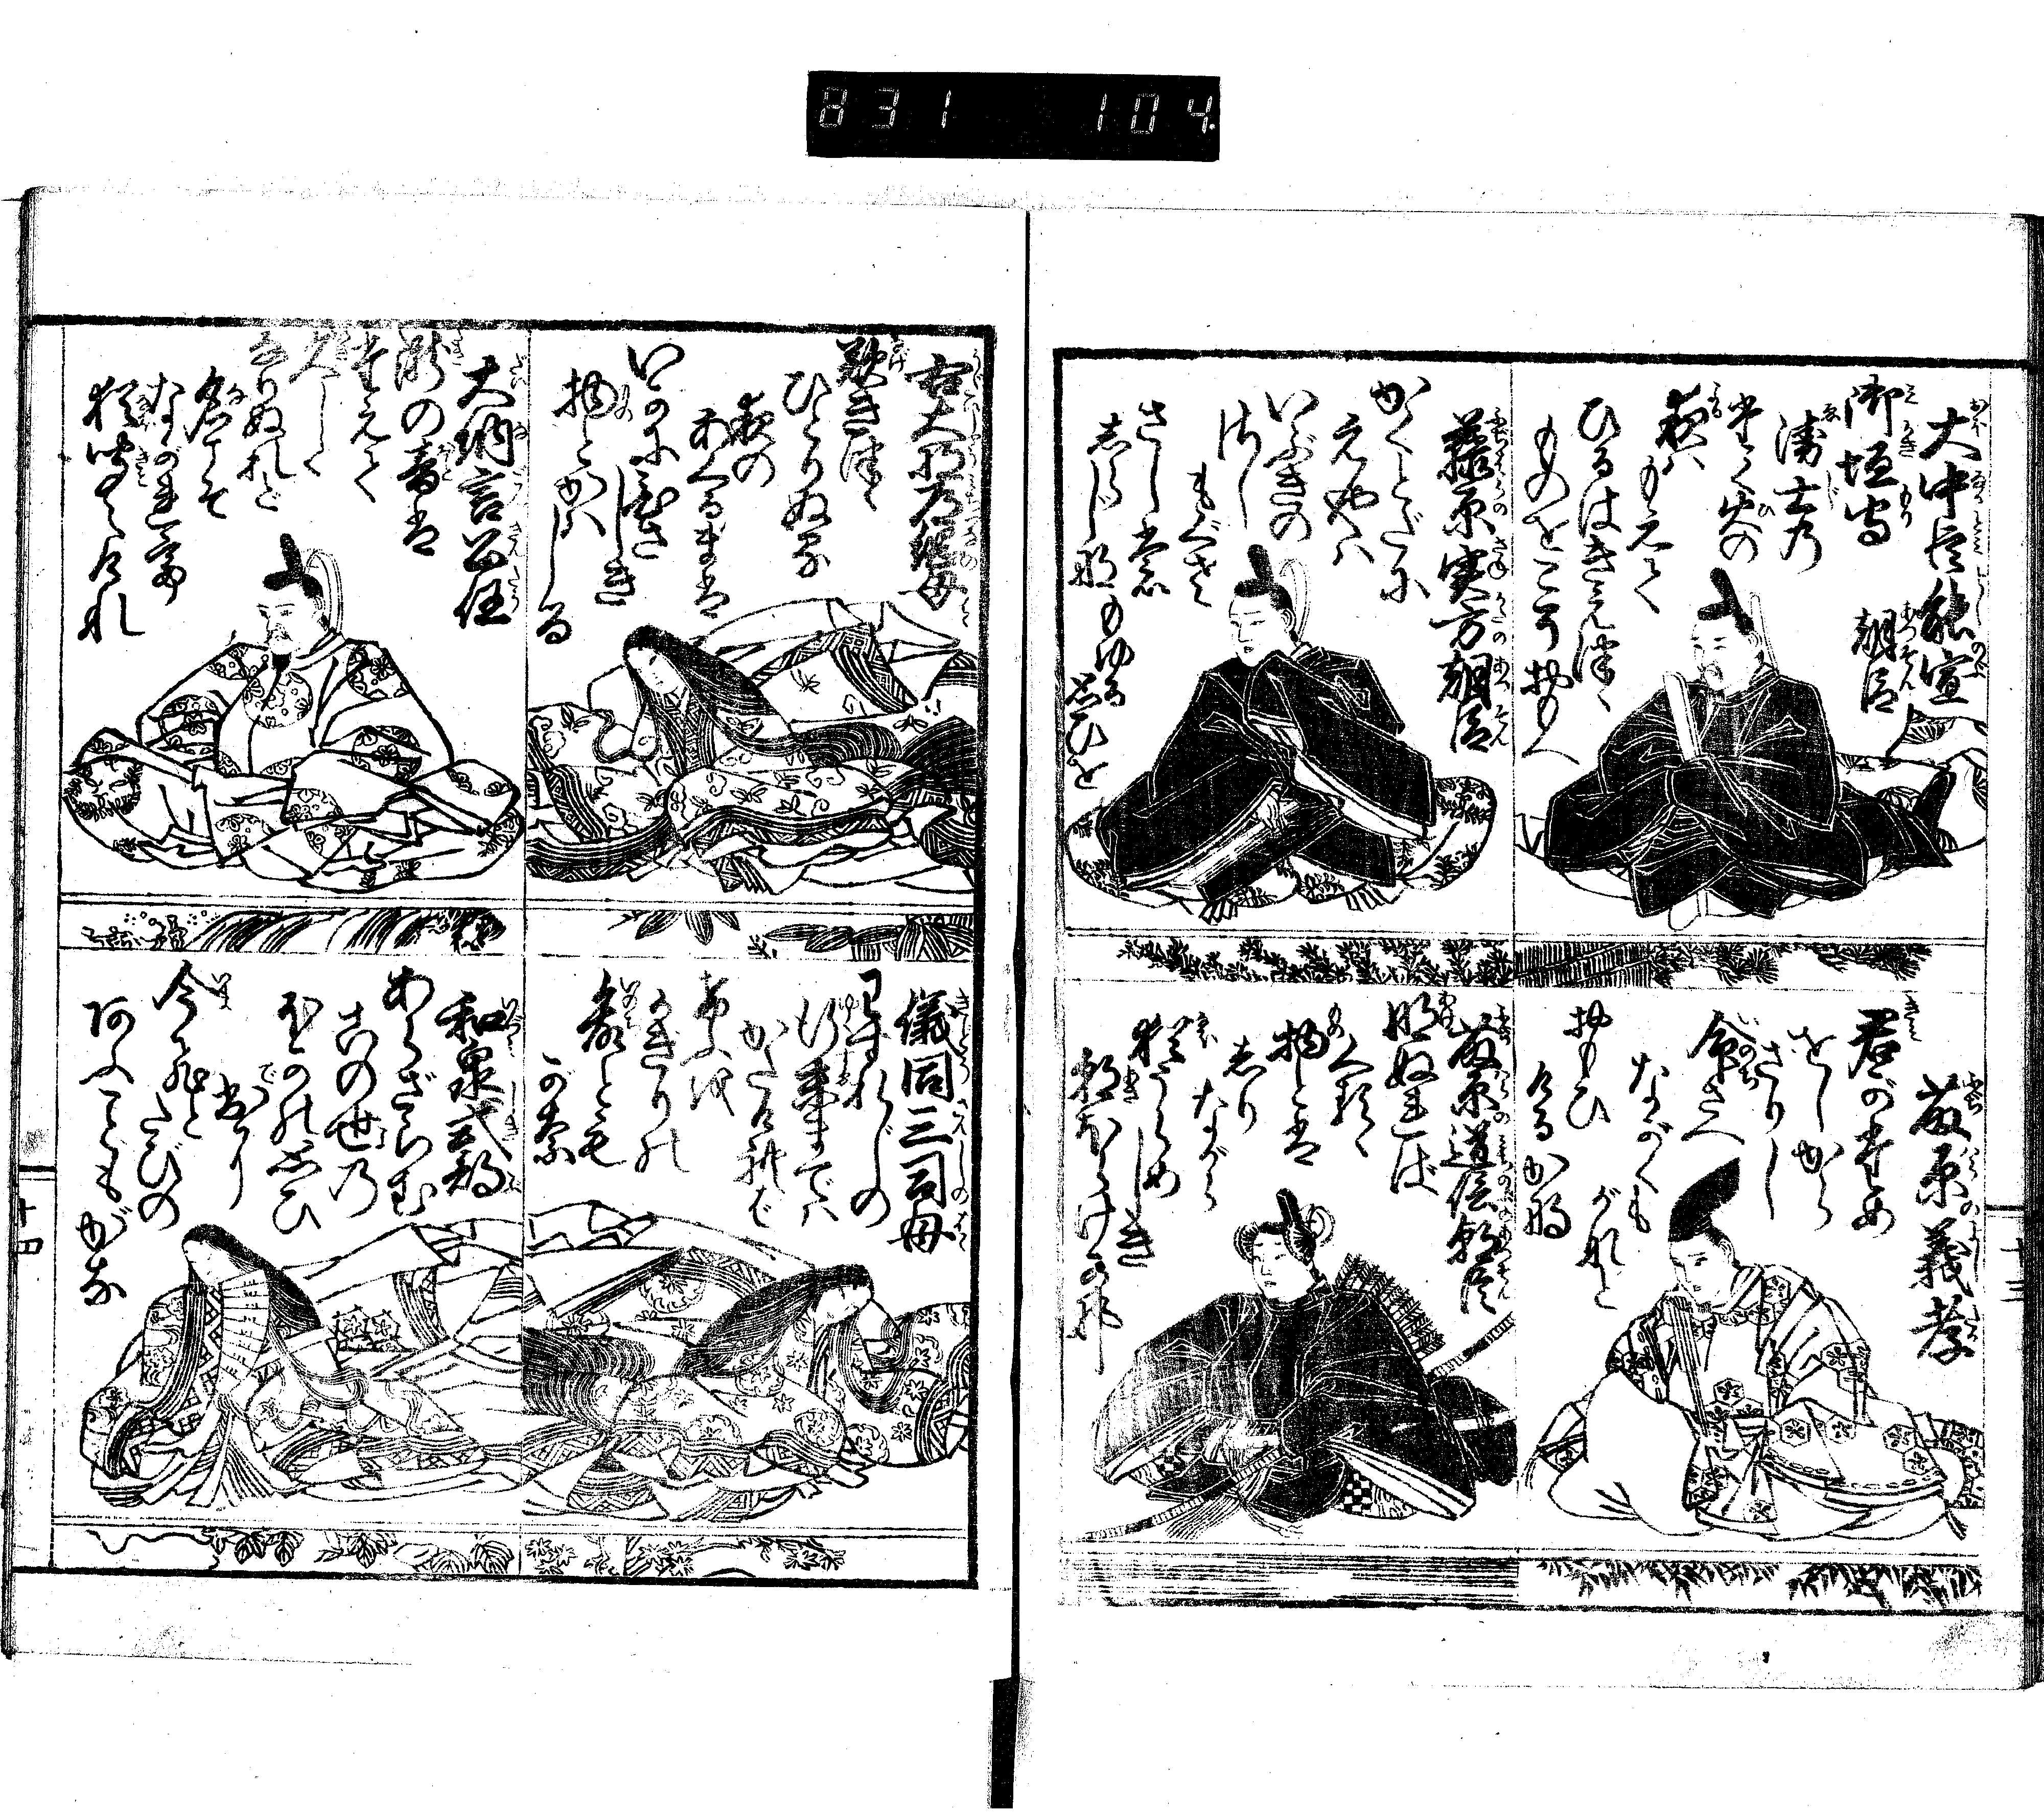 831 104
大中臣能宣
朝臣
御垣守
衛士乃
たく火の
夜ハ
もえて
ひるはきえつゝ
ものをこそおもへ
藤原義孝
君がため
をしから
ざりし
命さへ
ながくも
がなと
おもひ
ける哉
藤原実方朝臣
かくとだに
えやハ
いぶきの
さし
もぐさ
さしも
しらじな
もゆる
思ひを
藤原道信朝臣
明ぬれば
くるゝ
物とは
しり
ながら
猶うらめ
しき
朝ぼらけかな
右大将道綱母
歎きつゝ
ひとりぬる
夜の
あくるまは
いかに久しき
物とかハ
しる
儀同三司母
わすれじの
行末までハ
かたければ
けふを
かぎりの
命とも
がな
大納言公任
瀧の音は
たえて
久しく
なりぬれど
名こそ
ながれて
猶聞えけれ
和泉式部
あらざらむ
この世乃
ほかの思ひ
出に
今ひとたびの
阿ふこともがな
十三
十四